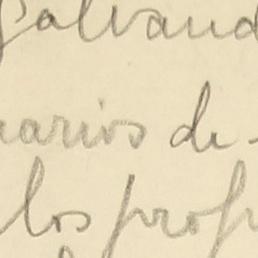 galvand
narios de-
los prop